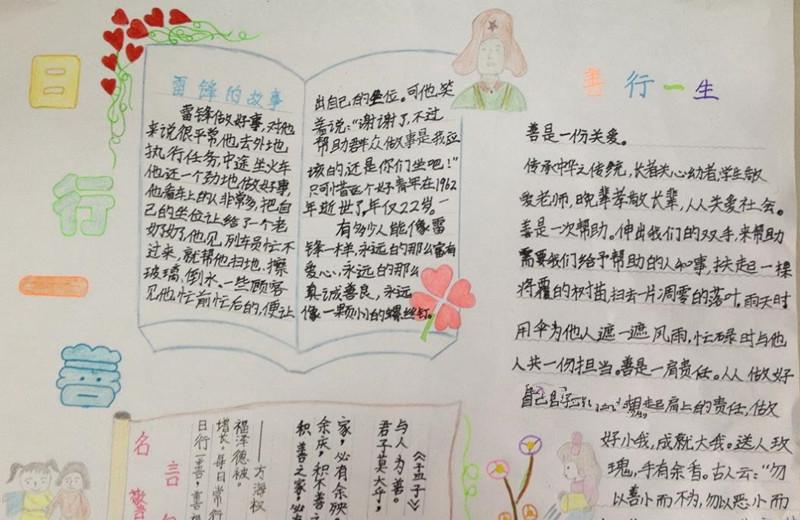 日
行
一
善
雷锋的故事
雷锋做好事,对他
来说很平常,他去外地
执行任务,中途坐火车
他还一个劲地做好事,
他看车上的人非常多,把自
己的坐位让给了一个老
奶奶,他见列车员忙不
过来,就帮他扫地、擦
玻璃、倒水。一些顾客
见他忙前忙后的,便让
出自己的坐位。可他笑
着说:“谢谢了,不过
帮助群众做事是我应
该的,还是你们坐吧!”
只可惜这个好青年在1962
年逝世了,年仅22岁。
有多少人能像雷
锋一样,永远的那么富有
爱心,永远的那么
真诚善良,永远
像一颗小小的螺丝钉。
善行一生
善是一份关爱。
传承中华之传统,长者关心幼者,学生敬
爱老师,晚辈孝敬长辈,人人关爱社会。
善是一次帮助。伸出我们的双手,来帮助
需要我们给予帮助的人和事,扶起一棵
将覆的树苗,扫去一片凋零的落叶。雨天时
用伞为他人遮一遮风雨,忙碌时与他
人共一份担当。善是一肩责任。人人做好
自己
起肩上的责任,做
好小我,成就大我。送人玫
瑰,手有余香。古人云:“勿
以善小而不为,勿以恶小而
名言警
与人为善。
君子莫大乎,
《孟子》
积善之家,必有
余庆,积不善之
家,必有余殃。
日行一善,
增长,每日常行
福泽德被。
——方海权